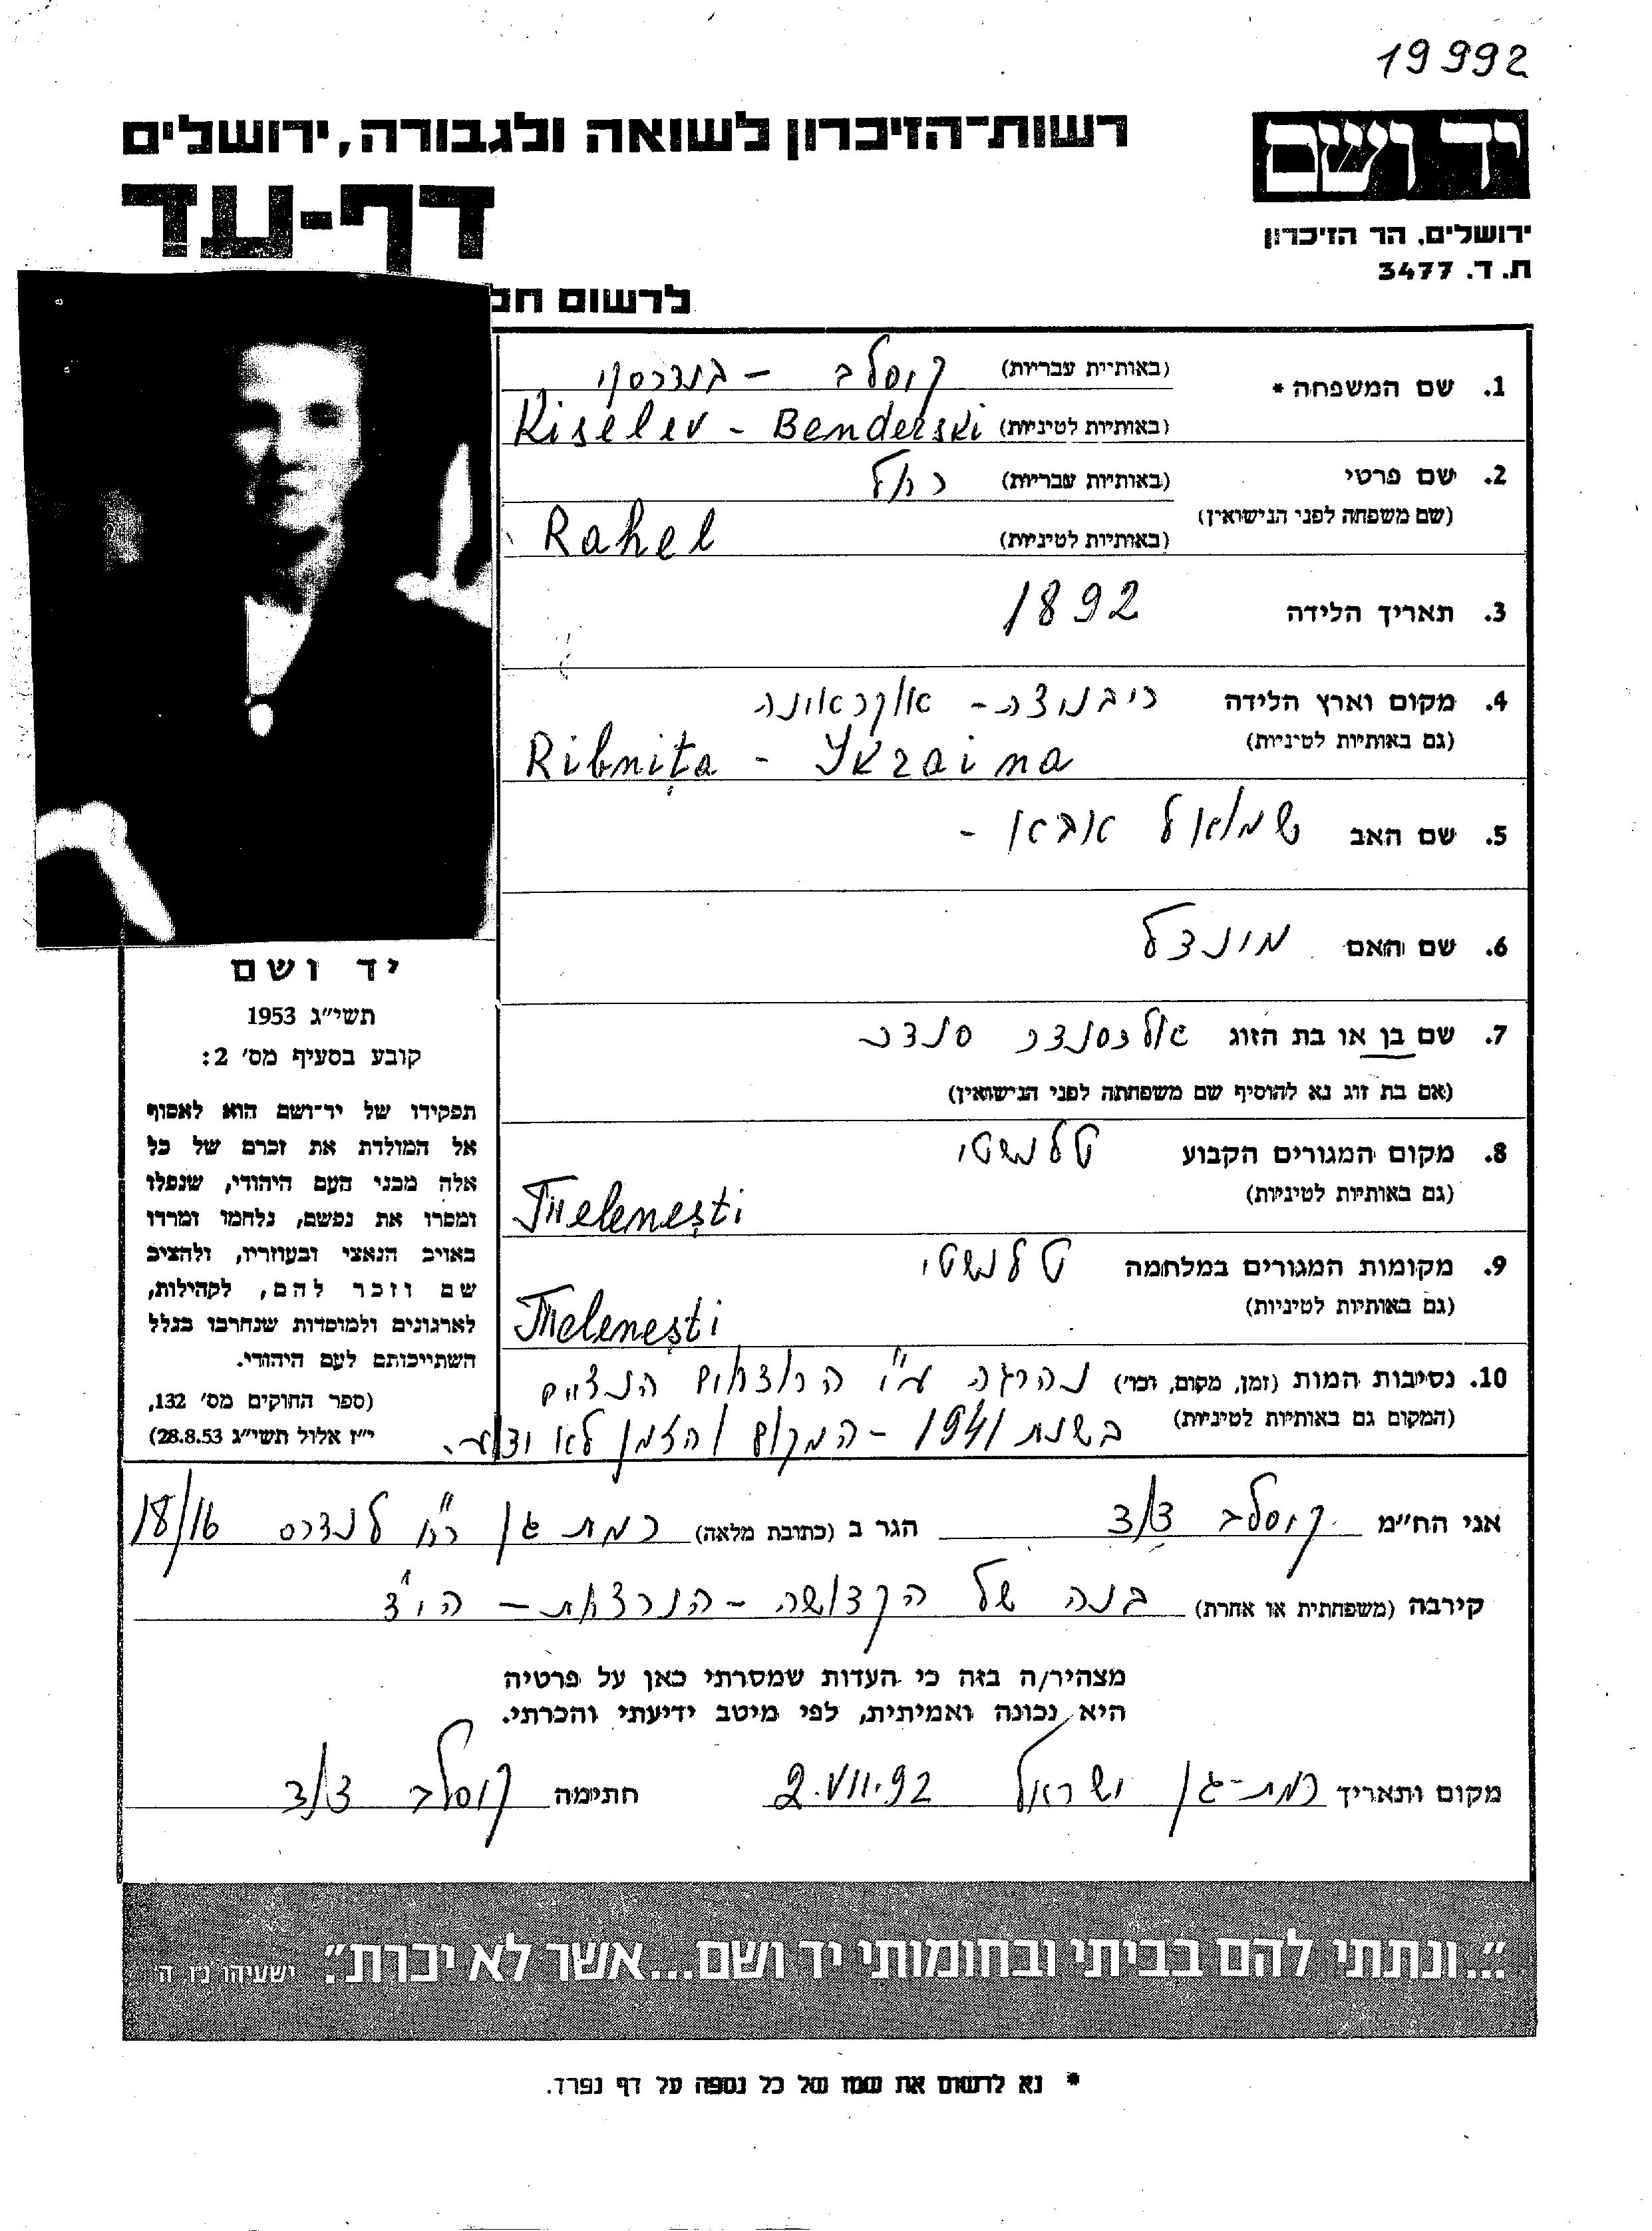 19992
יד ושם
רשות־הזיכרון לשואה ולגבורה, ירושלים
דף-עד
ירושלים, הר הזיכרון
ת. ד. 3477
לרשום חל
1. שם המשפחה * (באותיות עבריות) קיסלב - בנדרסקי
(באותיות לטיניות) Kiselev - Benderski
2. שם פרטי (באותיות עבריות) רחל
(שם משפחה לפני הנישואין)
(באותיות לטיניות) Rahel
3. תאריך הלידה 1892
4. מקום וארץ הלידה ריבניצה - אוקראינה
(גם באותיות לטיניות) Ribniţa - Ykraina
5. שם האב שמואל אבא -
6. שם האם
7. שם בן או בת הזוג אלכסנדר סנדר
(אם בת זוג נא להוסיף שם משפחתה לפני הנישואין)
8. מקום המגורים הקבוע טלנשטי
(גם באותיות לטיניות) Theleneşti
9. מקומות המגורים במלחמה טלנשטי
(גם באותיות לטיניות) Theleneşti
10. נסיבות המות (זמן, מקום, וכו') נהרגה ע"י הרוצחים הנצים
(המקום גם באותיות לטיניות) בשנת 1941 - המקום והזמן לא ידוע.
יד ושם
תשי"ג 1953
קובע בסעיף מס' 2:
תפקידו של יד־ושם הוא לאסוף
אל המולדת את זכרם של כל
אלה מבני העם היהודי, שנפלו
ומסרו את נפשם, נלחמו ומרדו
באויב הנאצי ובעוזריו, ולהציב
שם וזכר להם, לקהילות,
לארגונים ולמוסדות שנחרבו בגלל
השתייכותם לעם היהודי.
(ספר החוקים מס' 132,
י"ז אלול תשי"ג 28.8.53)
אני הח"מ קיסלב דוד הגר ב (כתובת מלאה) רמת גן רח' לנדרס 18/16
קירבה (משפחתית או אחרת) בנה של הקדושה - הנרצחת - הי"ד
מצהיר/ה בזה כי העדות שמסרתי כאן על פרטיה
היא נכונה ואמיתית, לפי מיטב ידיעתי והכרתי.
מקום ותאריך רמת-גן ישראל 2.VII.92 חתימה קיסלב דוד
"...ונתתי להם בביתי ובחומותי יד ושם...אשר לא יכרת". ישעיהו נ"ו, ה'
* נא לרשום את שמו של כל נספה על דף נפרד.